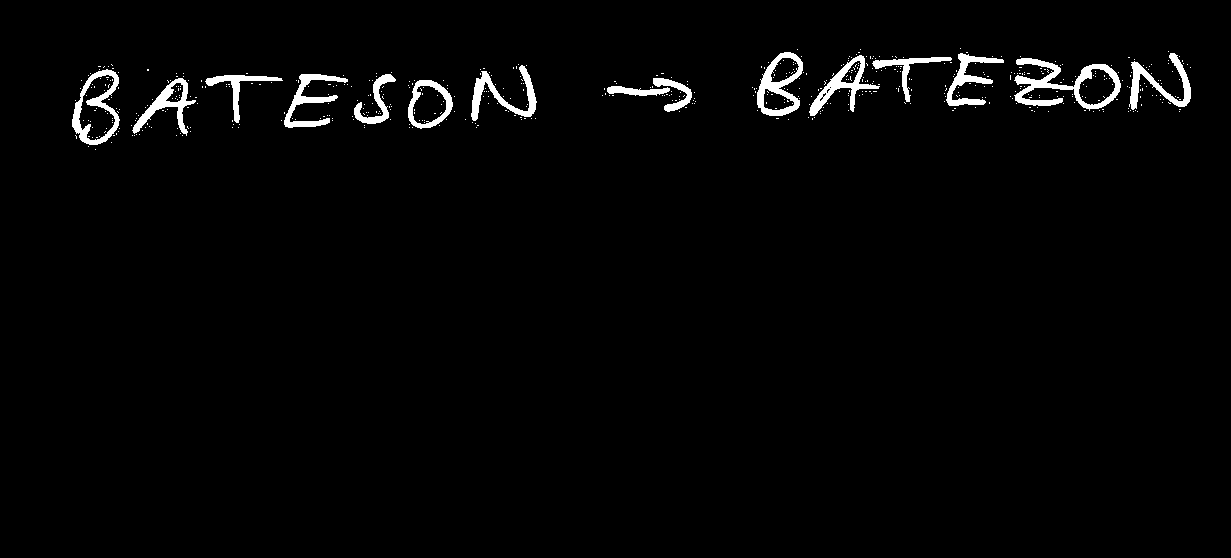 BATESON → BATEZON